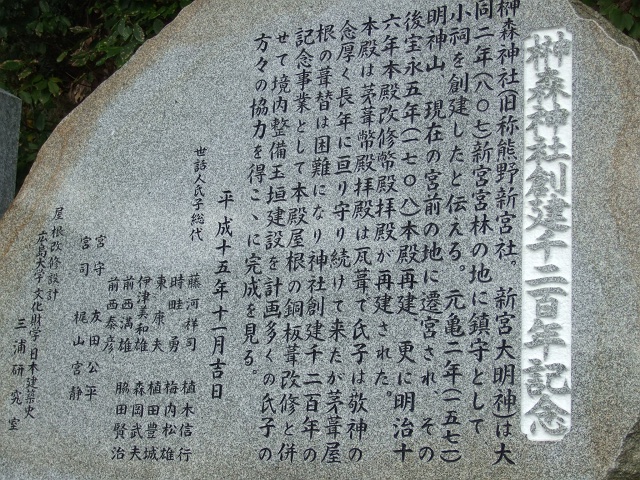 榊森神社創建千二百年記念
榊森神社(旧称熊野新宮社。新宮大明神)は大
同二年(八〇七)新宮宮林の地に鎮守として
小祠を創建したと伝える。元亀二年(一五七一)
明神山、現在の宮前の地に遷宮され、その
後宝永五年(一七〇八)本殿再建、更に明治十
六年本殿改修幣殿拝殿が再建された。
本殿は茅葺幣殿拝殿は瓦葺で氏子は敬神の
念厚く長年に亘り守り続けて来たが茅葺屋
根の葺替は困難になり神社創建千二百年の
記念事業として本殿屋根の銅板葺改修と併
せて境内整備玉垣建設を計画多くの氏子の
方々の協力を得こゝに完成を見る。
平成十五年十一月吉日
世話人氏子総代
藤河祥司 植木信行
時畦勇 梅内松雄
東康夫 植田豊城
伊津美和雄 森岡武夫
前西満雄 脇田賢治
前西泰彦
宮守 友田公平
宮司 梶山宮静
屋根改修設計
広島大学文化財学日本建築史
三浦研究室